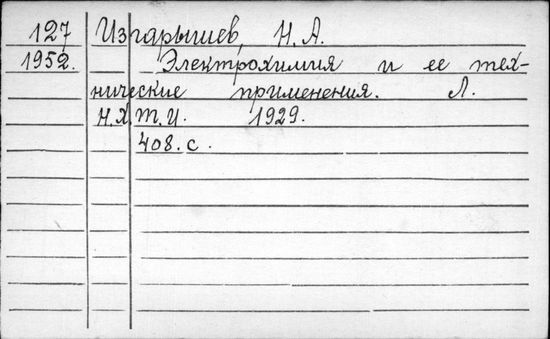 127 Изгарышев, Н. А.
1952. Электрохимия и ее тех-
нические применения. Л.
Н.Х.Т.И. 1929.
408. с.